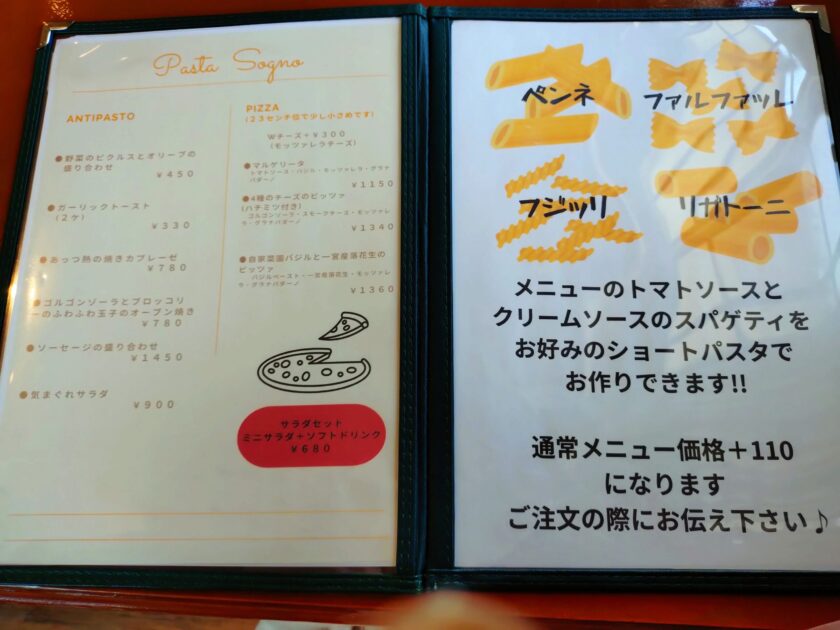 Pasta Sogno
ANTIPASTO
●野菜のピクルスとオリーブの
盛り合わせ
￥450
●ガーリックトースト
(2ケ)
￥330
●あっつ熱の焼きカプレーゼ
￥780
●ゴルゴンゾーラとブロッコリ
ーのふわふわ玉子のオーブン焼き
￥780
●ソーセージの盛り合わせ
￥1450
●気まぐれサラダ
￥900
PIZZA
(23センチ位で少し小さめです)
Wチーズ+￥300
(モッツァレラチーズ)
●マルゲリータ
トマトソース・バジル・モッツァレラ・グラナ
パダーノ
￥1150
●4種のチーズのピッツァ
(ハチミツ付き)
ゴルゴンゾーラ・スモークチーズ・モッツァレ
ラ・グラナパダーノ
￥1340
●自家菜園バジルと一宮産落花生の
ピッツァ
バジルペースト・一宮産落花生・モッツァレ
ラ・グラナパダーノ
￥1360
サラダセット
ミニサラダ+ソフトドリンク
￥680
ペンネ
ファルファッレ
フジッリ
リガトーニ
メニューのトマトソースと
クリームソースのスパゲティを
お好みのショートパスタで
お作りできます!!
通常メニュー価格＋110
になります
ご注文の際にお伝え下さい♪